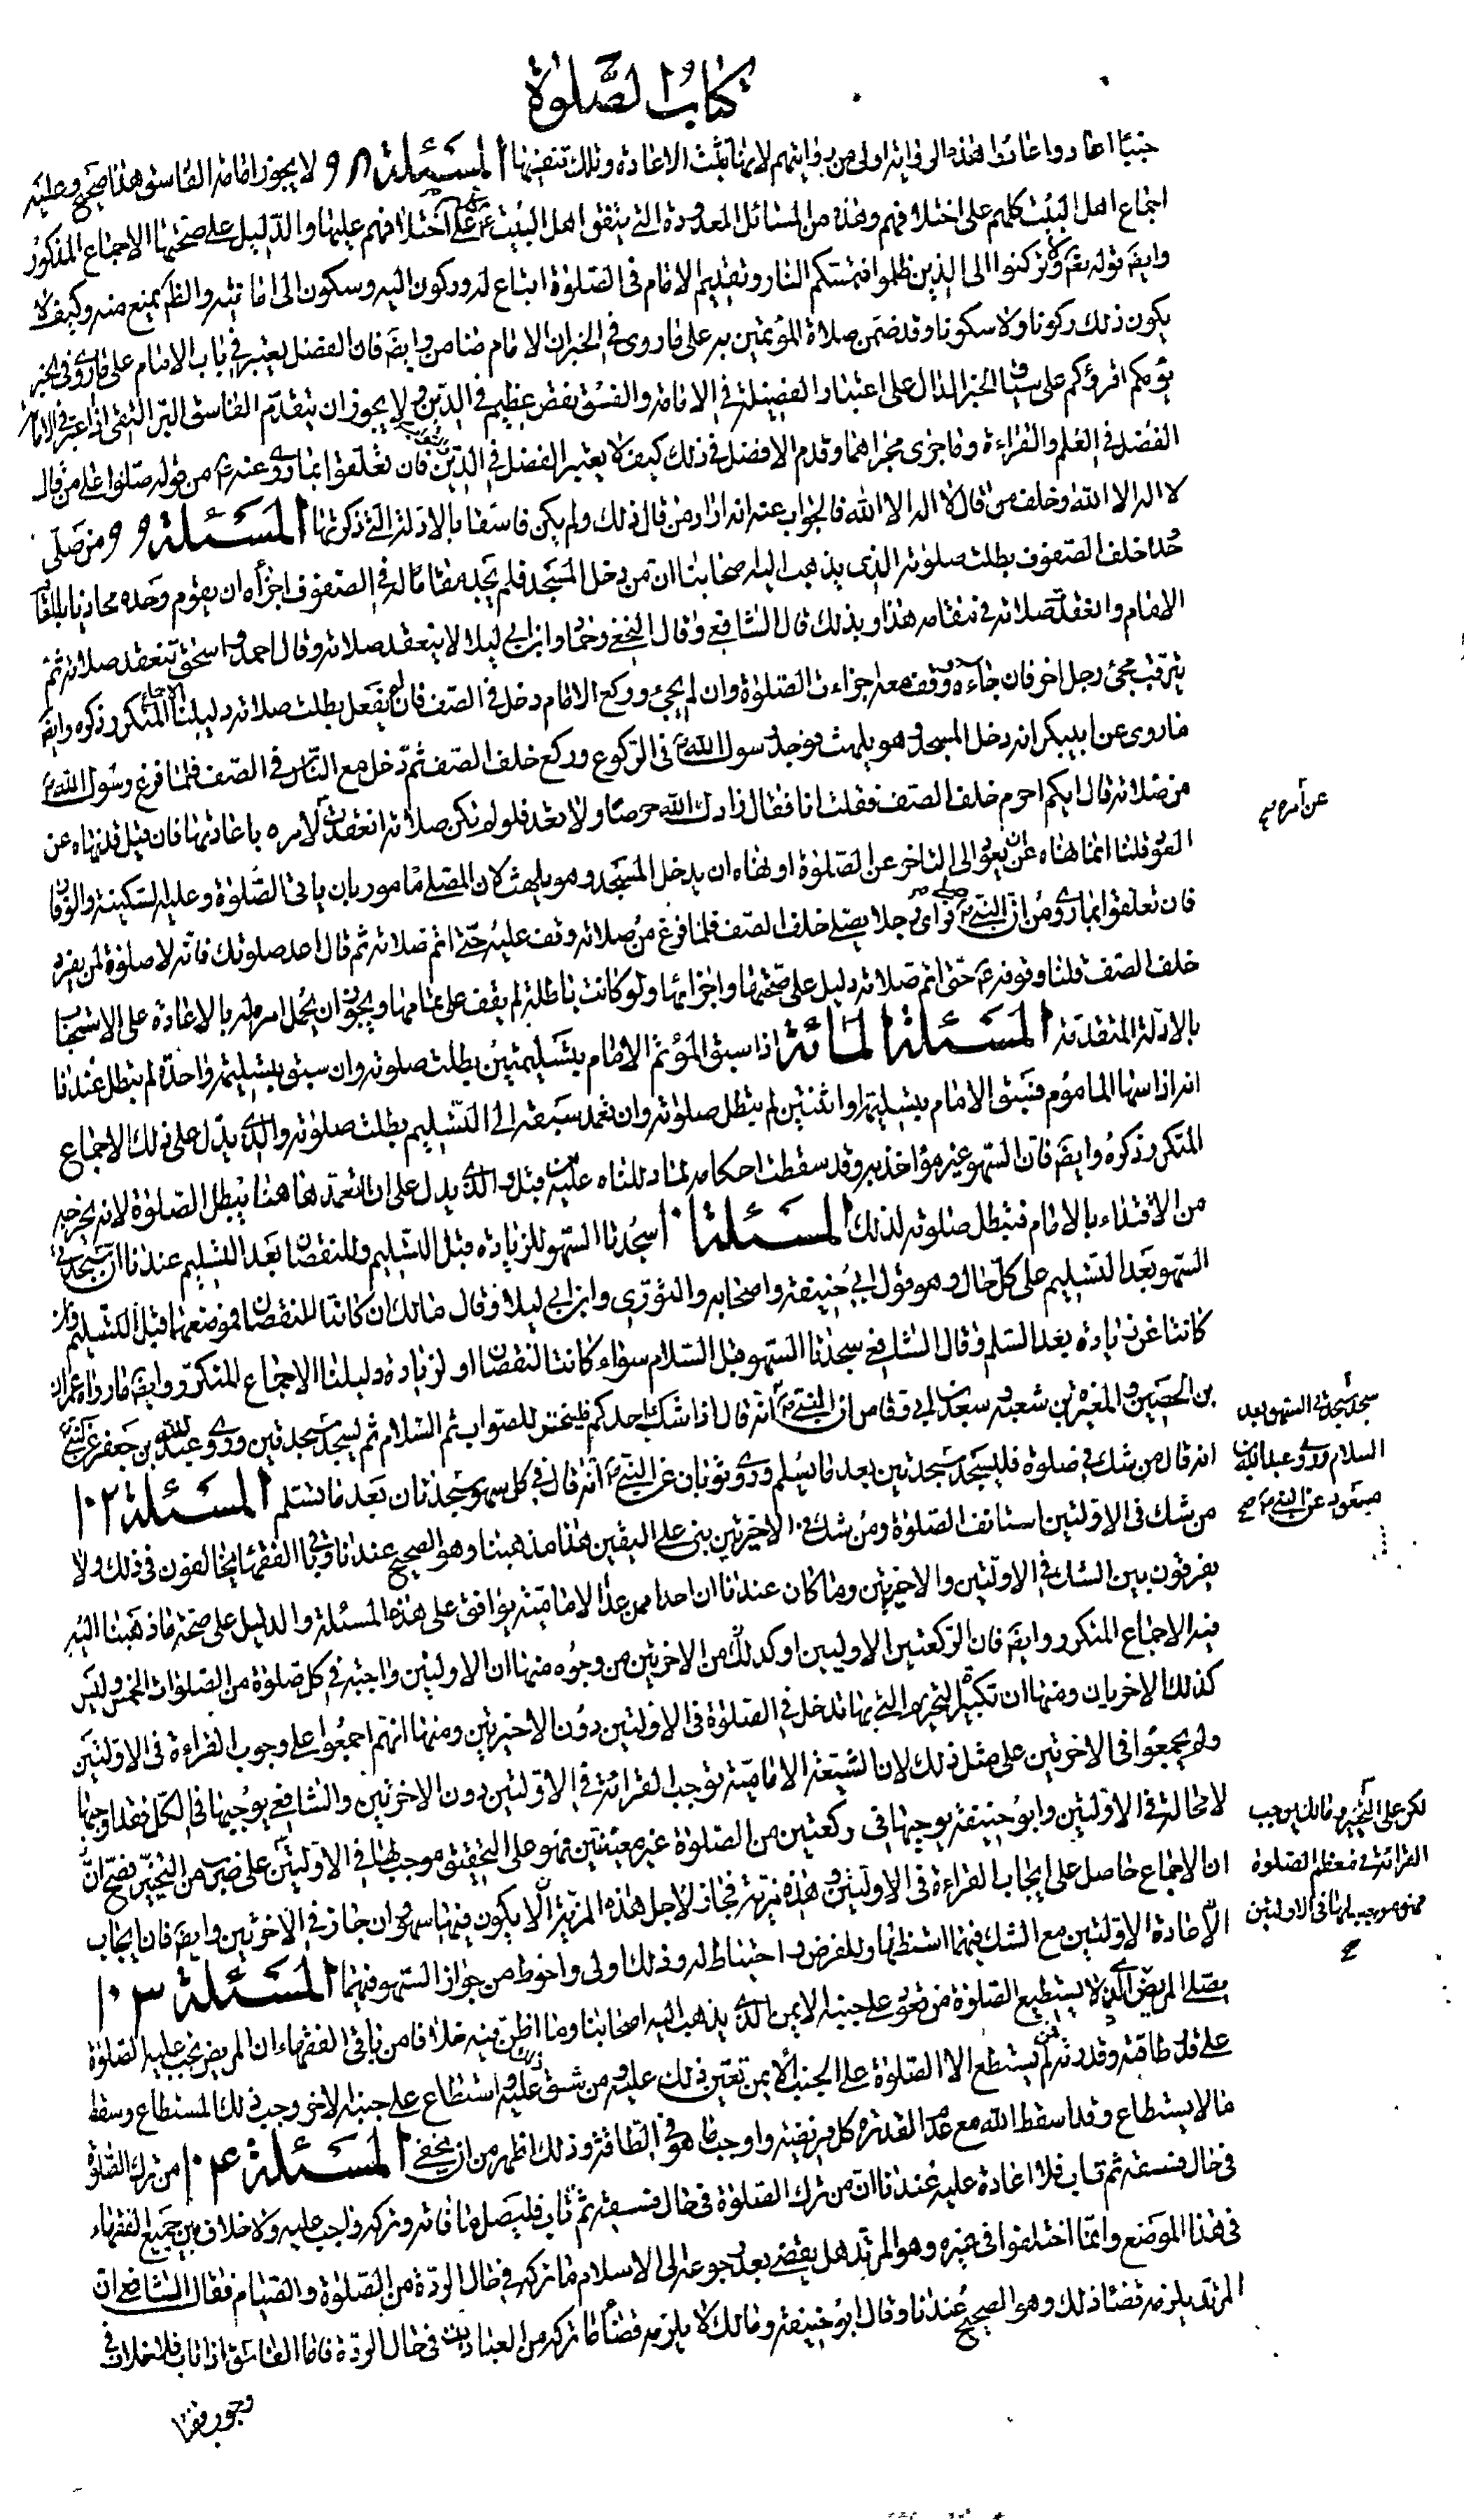 كتاب الصّلوة
جنبًا اعاد واعادوا هذه الرواية اولى من روايتهم لانها يثبت الاعادة وتلك تنفيها المسئلة ٩٨ لا يجوز امامة الفاسق هذا صحيح وعليه
اجماع اهل البيت كلهم على اختلافهم وهذه من المسائل المعدودة التي يتفق اهل البيت ع على اختلافهم عليها والدليل على صحتها الاجماع المذكور
وايضَ قوله تعَ ولا تركنوا الى الذين ظلموا فتمسكم النار وتقديم الامام في الصلوة اتباع له وركون اليه وسكون الى امامته والظلم يمنع منه وكيف لا
يكون ذلك ركونا ولا سكونا وقد ضمن صلاة المؤتمين به على ما روى في الخبر ان الامام ضامن وايضَ فان الفضل يعتبر في باب الامام على ما روى في الخبر
يؤمكم اقرؤكم على سياق الخبر الدال على اعتبار الفضيلة في الامامة والفسق نقص عظيم في الدين ولا يجوز ان يتقدم الفاسق البر التقى اذا اعتبر في الامامة
الفضل في العلم والقراءة وما جرى مجراهما وقدم الافضل في ذلك كيف لا يعتبر الفضل في الدين فان تعلقوا بما روى عنه ع من قوله صلوا على من قال
لا اله الا الله وخلف من قال لا اله الا الله فالجواب عنه انه اراد من قال ذلك ولم يكن فاسقا بالادلة التي ذكرتها المسئلة ٩٩ ومن صلى
وحده خلف الصفوف بطلت صلوته الذى يذهب اليه اصحابنا ان من دخل المسجد فلم يجد مقاما له في الصفوف اجزأه ان يقوم وحده محاذيا لمقام
الامام وانعقد صلاته في مقامه هذا وبذلك قال الشافعي وقال النخعي وحماد وابن ابي ليلا لا ينعقد صلاته وقال احمد واسحق تنعقد صلاته ثم
يترقب مجئ رجل اخر فان جاءه ووقف معه اجزاءت الصلوة وان لم يجئ وركع الامام دخل في الصف فان لم يفعل بطلت صلاته دليلنا الاجماع المتكرر ذكره وايضَ
ما روى عن ابي بكر انه دخل المسجد وهو يلهث فوجد رسول الله ص في الركوع وركع خلف الصف ثم دخل مع الناس في الصف فلما فرغ رسول الله ص
من صلاته قال ايكم احرم خلف الصف فقلت انا فقال زادك الله حرصًا ولا تعد فلو لم تكن صلاته انعقدت لامره باعادتها فان قيل قد نهاه عن
العود قلنا انما نهاه عن ان يعود الى التاخر عن الصلوة او نهاه ان يدخل المسجد وهو يلهث لان المصلى مامور بان ياتى الصلوة وعليه السكينة والوقار
فان تعلقوا بما روى من ان النبي ص راى رجلا يصلى خلف الصف فلما فرغ من صلاته وقف عليه حتى اتم صلاته ثم قال اعد صلوتك فانه لا صلوة لمن يفرد
خلف الصف قلنا وقوفه ع حتى اتم صلاته دليل على صحتها واجزائها ولو كانت باطلة لم يقف على تمامها ويجوز ان يحمل امره له بالاعادة على الاستحباب
بالادلة المتقدمة المسئلة المائة اذا سبق المؤتم الامام بتسليمتين بطلت صلوته وان سبق بتسليمة واحدة لم يبطل عندنا
انه اذا سها الماموم فسبق الامام بتسليمة او اثنتين لم يبطل صلوته وان تعمد سبقه الى التسليم بطلت صلوته والذي يدل على ذلك الاجماع
المتكرر ذكره وايضَ فان السهو غير مؤاخذ به وقد سقطت احكامه لما دللنا عليه من قبل والذي يدل على ان التعمد هاهنا يبطل الصلوة لانه يخرج به
من الاقتداء بالامام فتبطل صلوته لذلك المسئلة ١٠١ سجدتا السهو للزيادة قبل التسليم وللنقصان بعد التسليم عندنا ان سجدتى
السهو بعد التسليم على كل حال وهو قول ابي حنيفة واصحابه والثورى وابن ابي ليلا وقال مالك ان كانتا للنقصان فموضعها قبل التسليم وان
كانتا عن زيادة بعد السلم وقال الشافعي سجدتا السهو قبل السلام سواء كانت لنقصان او لزيادة دليلنا الاجماع المتكرر وايضَ ما رواه عمران
بن الحصين والمغيرة بن شعبة وسعد بن ابي وقاص ان النبي ص انه قال اذا شك احدكم فليتحرّ للصواب ثم السلام ثم ليسجد سجدتين وروى عبد الله بن جعفر عن النبي
انه قال من شك في صلوة فليسجد سجدتين بعد ما يسلم وروى ثوبان عن النبي ص انه قال في كل سهو سجدتان بعد ما تسلم المسئلة ١٠٢
من شك في الاوّلتين استانف الصلوة ومن شك في الاخيرتين بنى على اليقين هذا مذهبنا وهو الصحيح عندنا وباقى الفقهاء يخالفون في ذلك ولا
يفرقون بين الشك في الاولتين والاخيرتين وما كان عندنا ان احدا ممن عدا الامامية يوافق على هذه المسئلة والدليل على صحة ما ذهبنا اليه
فيه الاجماع المتكرر وايضَ فان الركعتين الاوليين اوكد من الاخرتين من وجوه منها ان الاوليين واجبة في كل صلوة من الصلوات الخمس وليس
كذلك الاخريان ومنها ان تكبيرة التحريم التي بها تدخل في الصلوة في الاولتين دون الاخيرتين ومنها انهم اجمعوا على وجوب القراءة في الاولتين
ولم يجمعوا في الاخرتين على مثل ذلك لان الشيعة الامامية توجب القرائة في الاولتين دون الاخرتين والشافعي يوجبها في الكل فقد اوجبها
لا محالة في الاولتين وابو حنيفة يوجبها في ركعتين من الصلوة غير معينتين فهو على التحقيق موجب لها في الاولتين على ضرب من التخيير فصح ان
ان الاجماع حاصل على ايجاب القراءة في الاولتين وهذه مزية فجاز لاجل هذه المزية الا يكون فيها سهو وان جاز في الاخرتين وايضَ فان ايجاب
الاعادة الاولتين مع الشك فيهما استظهار للفرض واحتياط له وذلك اولى واحوط من جواز السهو فيهما المسئلة ١٠٣
يصلى المريض الذي لا يستطيع الصلوة من قعود على جنبه الايمن الذي يذهب اليه اصحابنا وما اظن فيه خلافا من باقى الفقهاء ان المريض يجب عليه الصلوة
على قدر طاقته وقدرته فان لم يستطع الا الصلوة على الجنب الايمن تعين ذلك عليه ومن شق ذلك عليه واستطاع على جنبه الاخر وجب ذلك المستطاع وسقط
ما لا يستطاع وقد اسقط الله مع عدم القدرة كل فريضة واوجب ما هو في الطاقة وذلك اظهر من ان يخفى المسئلة ١٠٤ من ترك الصلوة
في حال فسقه ثم تاب فلا اعادة عليه عندنا ان من ترك الصلوة في حال فسقه ثم تاب فليصل ما فاته وتركه واجب عليه ولا خلاف بين جميع الفقهاء
في هذا الموضع وانما اختلفوا في غيره وهو المرتد هل يقضى بعد رجوعه الى الاسلام ما تركه في حال الردة من الصلوة والصيام فقال الشافعي ان
المرتد يلزمه قضاء ذلك وهو الصحيح عندنا وقال ابو حنيفة ومالك لا يلزمه قضاء ما تركه من العبادات في حال الردة فاما الفاسق اذا تاب فلا خلاف في
وجوب قضا
عن أمره ص
سجد سجدتى السهو بعد
السلام وروى عبد الله بن
مسعود عن النبي ص
لكن على التخيير ومالك يوجب
القرائة في معظم الصلوة
فهو موجب لها في الاولتين